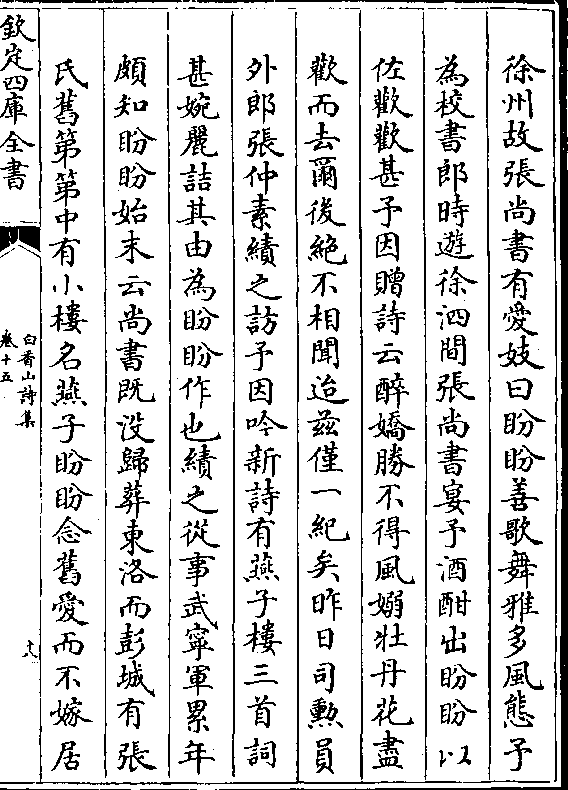 徐州故張尚書有愛妓曰盼盼善歌舞雅多風態予
為校書郎時遊徐泗間張尚書宴予酒酣出盼盼以
佐歡歡甚予因贈詩云醉嬌勝不得風嫋牡丹花盡
歡而去爾後絶不相聞迨兹僅一紀矣昨日司勲員
外郎張仲素繢之訪予因吟新詩有燕子樓三首詞
甚婉麗詰其由為盼盼作也繢之從事武寧軍累年
頗知盼盼始末云尚書既沒歸葬東洛而彭城有張
氏舊第第中有小樓名燕子盼盼念舊愛而不嫁居
欽定四庫全書
白香山詩集
卷十五
十八